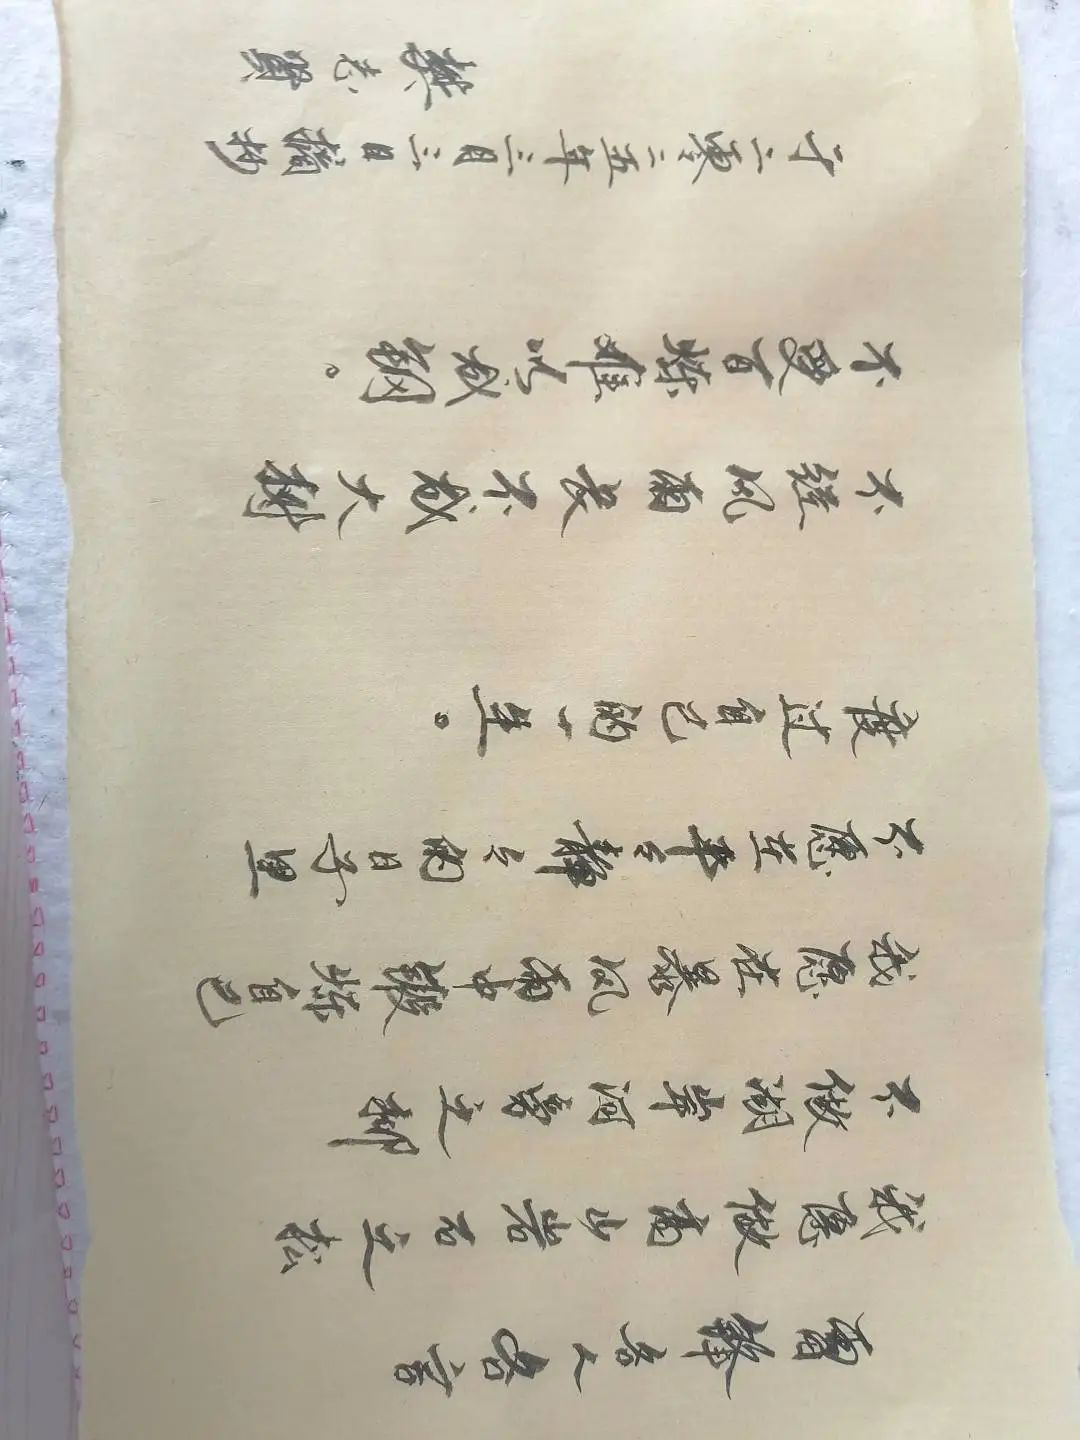 雷锋名人名言
我愿做高山岩石之松
不做湖岸河旁之柳
我愿在暴风雨中锻炼自己
不愿在平平静静的日子里
度过自己的一生。
不经风雨长不成大树
不受百炼难以成钢。
于二零二五年三月三日摘抄
樊志贤